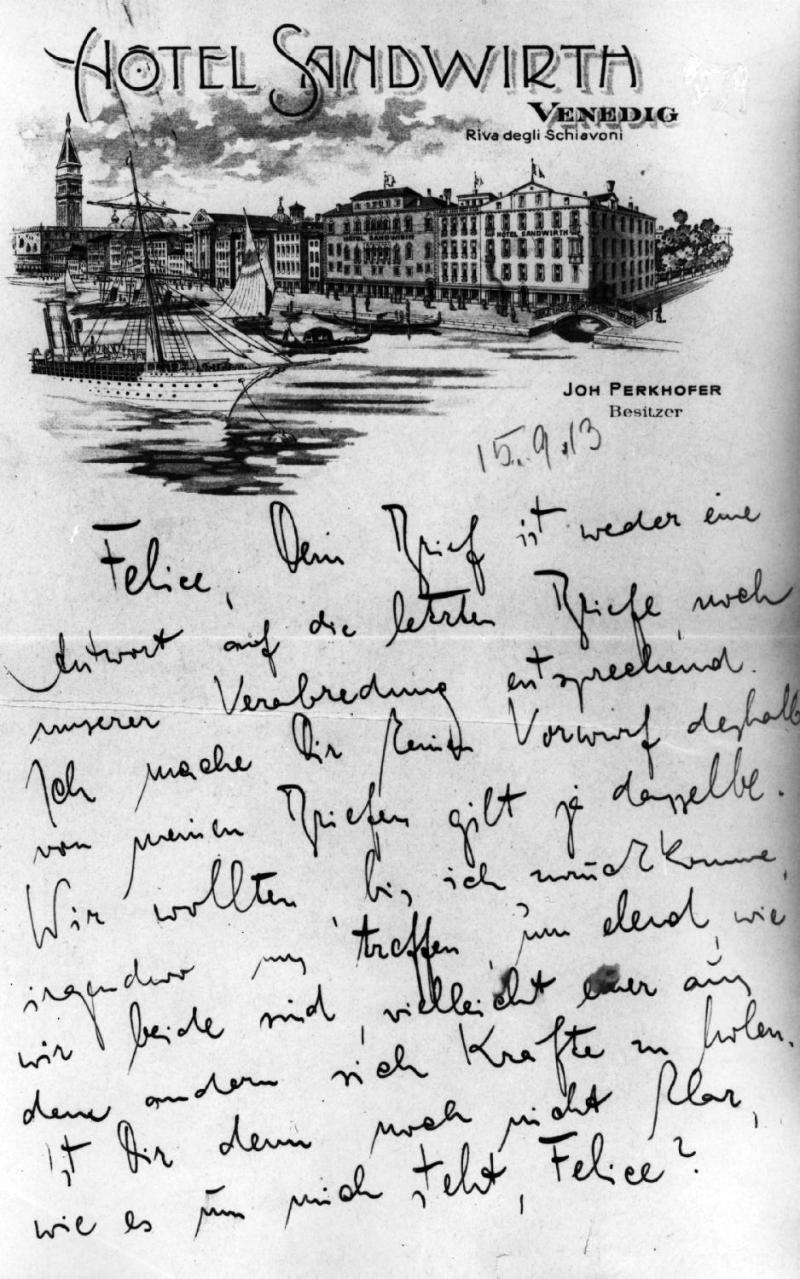 HÔTEL SANDWIRTH
VENEDIG
Riva degli Schiavoni
HOTEL SANDWIRTH
HOTEL SANDWIRTH
JOH PERKHOFER
Besitzer
15.9.13
Felice, Dein Brief ist weder eine
Antwort auf die letzten Briefe, noch
unserer Verabredung entsprechend.
Ich mache Dir keinen Vorwurf deshalb
von meinen Briefen gilt ja dasselbe.
Wir wollten, bis ich zurückkomme,
irgendwo uns treffen, um elend, wie
wir beide sind, vielleicht einer aus
dem andern sich Kräfte zu holen.
Ist Dir denn noch nicht klar,
wie es um mich steht, Felice?